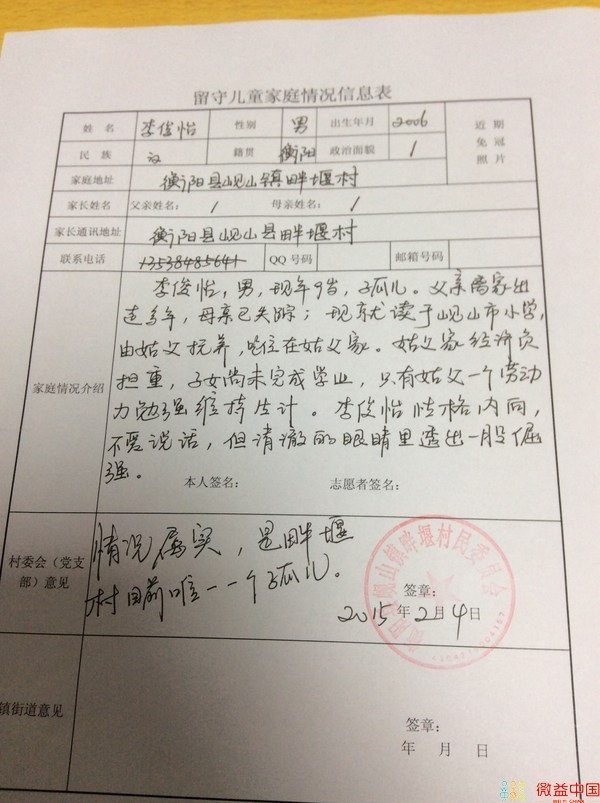 留守儿童家庭情况信息表
姓 名 李俊怡 性别 男 出生年月 2006 近 期
免 冠
照 片
民 族 汉 籍贯 衡阳 政治面貌 /
家庭地址 衡阳县岘山镇畔堰村
家长姓名 父亲姓名： / 母亲姓名： /
家长通讯地址 衡阳县岘山县畔堰村
联系电话 13538485641 QQ 号码 邮箱号码
家庭情况介绍
李俊怡，男，现年9岁，孤儿。父亲离家出
走多年，母亲已失踪；现就读于岘山市小学，
由姑父抚养，吃住在姑父家。姑父家经济负
担重，子女尚未完成学业，只有姑父一个劳动
力勉强维持生计。李俊怡性格内向，
不爱说话，但清澈的眼睛里透出一股倔
强。
本人签名： 志愿者签名：
村委会（党支
部）意见
情况属实，是畔堰
村目前唯一一个孤儿。
签章：
2015年2月4日
岘山镇畔堰村民委员会
镇街道意见
签章：
年 月 日
微益中国